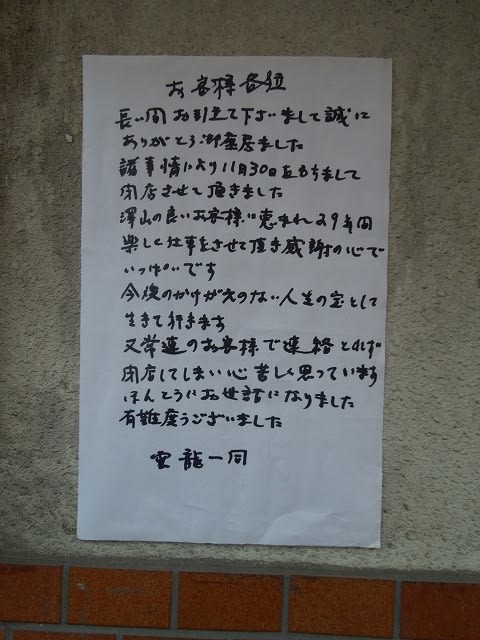 お客様各位
長い間お引立て下さいまして誠に
ありがとう御座居ました
諸事情により11月30日をもちまして
閉店させて頂きました
澤山の良いお客様に恵まれ29年間
楽しく仕事をさせて頂き感謝の心で
いっぱいです
今後のかけがえのない人生の宝として
生きて行きます
又常連のお客様で連絡とれず
閉店してしまい心苦しく思っています
ほんとうにお世話になりました
有難度うございました
雲龍一同